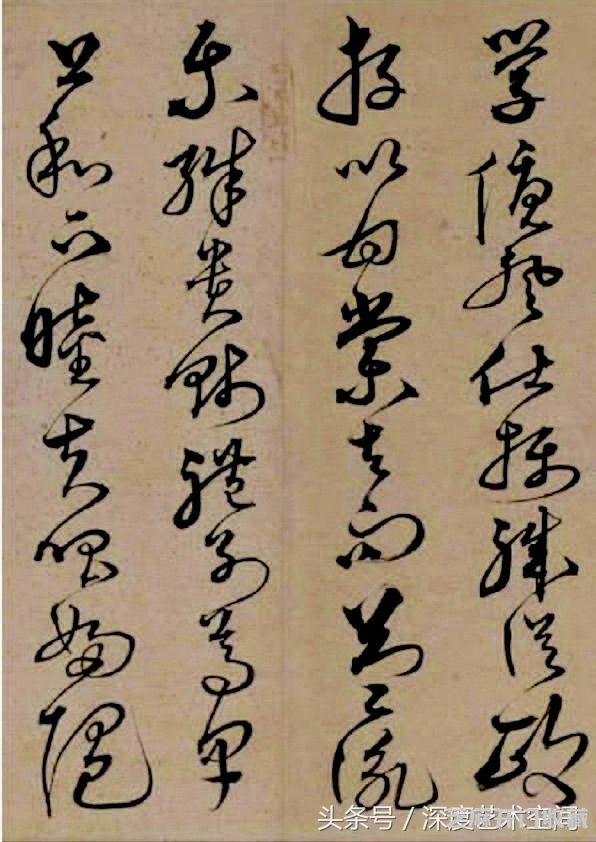 學優登仕攝職從政
存以甘棠去而益詠
樂殊貴賤禮別尊卑
上和下睦夫唱婦隨
头条号／深度艺术空间